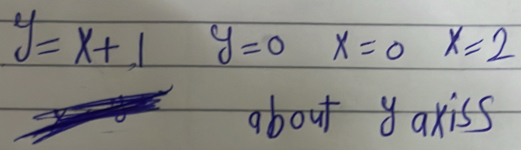 y = x + 1 y = 0 x = 0 x = 2
about y axiss